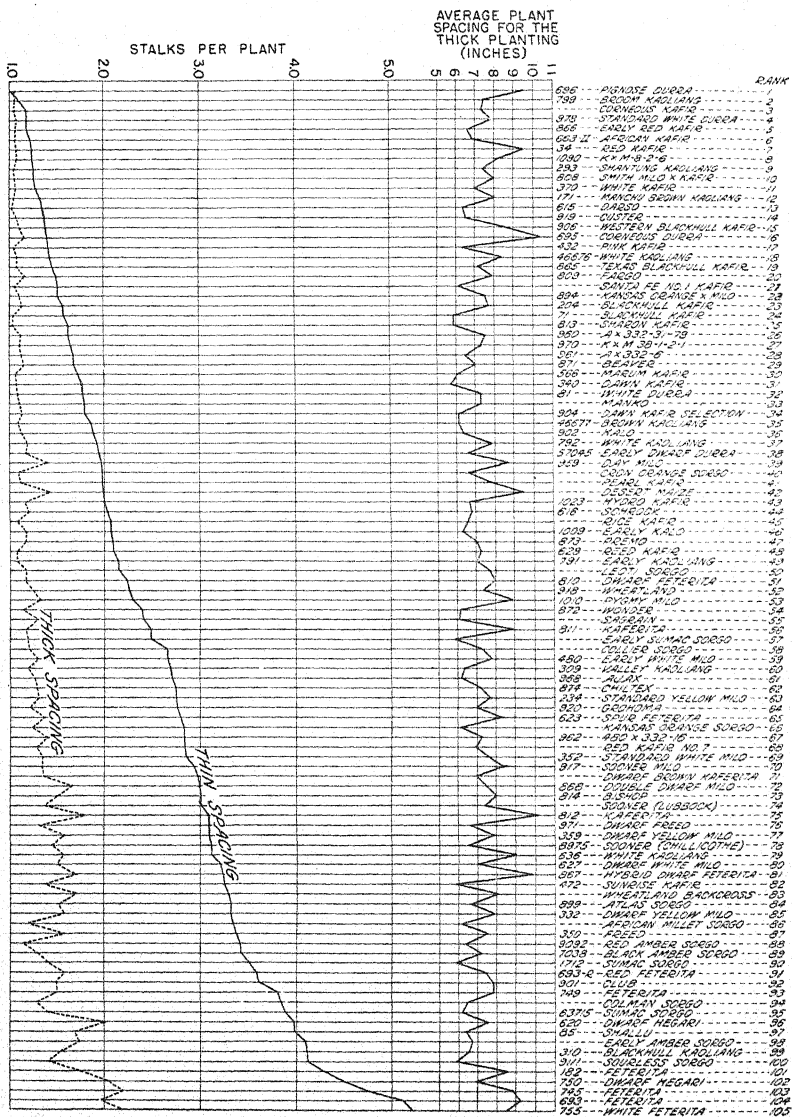 AVERAGE PLANT
SPACING FOR THE
THICK PLANTING
(INCHES)
STALKS PER PLANT
1.0 2.0 3.0 4.0 5.0 5 6 7 8 9 10 11
RANK
696 PIGNOSE DURRA 1
799 BROOM KAOLIANG 2
CORNEOUS KAFIR 3
978 STANDARD WHITE DURRA 4
866 EARLY RED KAFIR 5
663-II AFRICAN KAFIR 6
34 RED KAFIR 7
1090 K×M-8-2-6 8
293 SHANTUNG KAOLIANG 9
808 SMITH MILO × KAFIR 10
370 WHITE KAFIR 11
171 MANCHU BROWN KAOLIANG 12
615 DARSO 13
919 CUSTER 14
906 WESTERN BLACKHULL KAFIR 15
695 CORNEOUS DURRA 16
432 PINK KAFIR 17
46676 WHITE KAOLIANG 18
865 TEXAS BLACKHULL KAFIR 19
809 FARGO 20
SANTA FE NO. 1 KAFIR 21
894 KANSAS ORANGE × MILO 22
204 BLACKHULL KAFIR 23
71 BLACKHULL KAFIR 24
813 SHARON KAFIR 25
960 A×332-31-79 26
970 K×M 38-1-2-1 27
961 A×332-6 28
871 BEAVER 29
566 MARUM KAFIR 30
340 DAWN KAFIR 31
81 WHITE DURRA 32
MANKO 33
904 DAWN KAFIR SELECTION 34
46677 BROWN KAOLIANG 35
902 KALO 36
792 WHITE KAOLIANG 37
57045 EARLY DWARF DURRA 38
959 DAY MILO 39
CRON ORANGE SORGO 40
PEARL KAFIR 41
DESERT MAIZE 42
1023 HYDRO KAFIR 43
616 SCHROCK 44
RICE KAFIR 45
1009 EARLY KALO 46
873 PREMO 47
629 REED KAFIR 48
791 EARLY KAOLIANG 49
LEOTI SORGO 50
810 DWARF FETERITA 51
918 WHEATLAND 52
1010 PYGMY MILO 53
872 WONDER 54
SAGRAIN 55
811 KAFERITA 56
EARLY SUMAC SORGO 57
COLLIER SORGO 58
480 EARLY WHITE MILO 59
309 VALLEY KAOLIANG 60
968 AJAX 61
874 CHILTEX 62
234 STANDARD YELLOW MILO 63
920 GROHOMA 64
623 SPUR FETERITA 65
KANSAS ORANGE SORGO 66
962 480 × 332-16 67
RED KAFIR NO. 7 68
352 STANDARD WHITE MILO 69
917 SOONER MILO 70
DWARF BROWN KAFERITA 71
868 DOUBLE DWARF MILO 72
814 BISHOP 73
SOONER (LUBBOCK) 74
812 KAFERITA 75
971 DWARF FREED 76
359 DWARF YELLOW MILO 77
8975 SOONER (CHILLICOTHE) 78
636 WHITE KAOLIANG 79
627 DWARF WHITE MILO 80
867 HYBRID DWARF FETERITA 81
472 SUNRISE KAFIR 82
WHEATLAND BACKCROSS 83
899 ATLAS SORGO 84
332 DWARF YELLOW MILO 85
AFRICAN MILLET SORGO 86
350 FREED 87
9092 RED AMBER SORGO 88
7038 BLACK AMBER SORGO 89
1712 SUMAC SORGO 90
693-R RED FETERITA 91
901 CLUB 92
749 FETERITA 93
COLMAN SORGO 94
63715 SUMAC SORGO 95
620 DWARF HEGARI 96
85 SHALLU 97
EARLY AMBER SORGO 98
310 BLACKHULL KAOLIANG 99
9111 SOURLESS SORGO 100
182 FETERITA 101
750 DWARF HEGARI 102
745 FETERITA 103
693 FETERITA 104
755 WHITE FETERITA 105
THICK SPACING
THIN SPACING